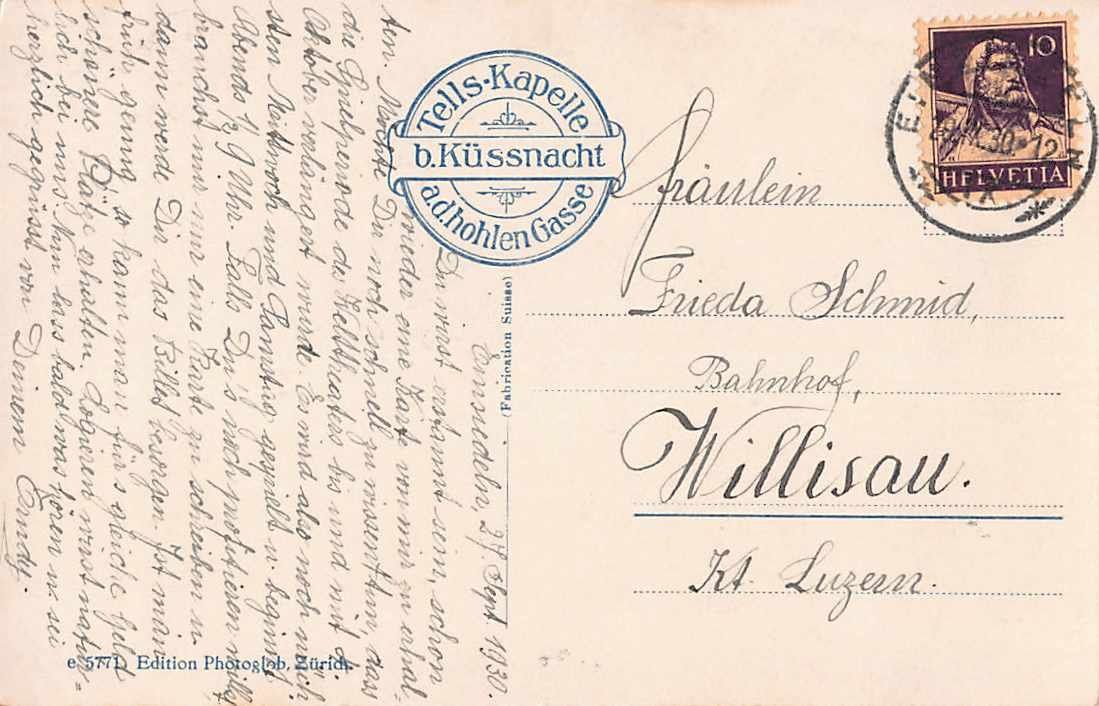 Tells-Kapelle
b. Küssnacht
a.d. hohlen Gasse
10
HELVETIA
Fräulein
Frieda Schmid,
Bahnhof,
Willisau.
Kt. Luzern.
Einsiedeln, 27. Sept 1930.
Du wirst erstaunt sein, schon
wieder eine Karte von mir zu erhal-
ten. Möchte Du noch schnell zu wissen thun, dass
die Spielperiode des Welttheaters bis und mit 4.
Oktober verlängt wurde. Es wird also noch näch
sten Mittwoch und Samstag gespielt u. beginnt
Abends 1/2 9 Uhr. Falls Du's noch profitieren willst
brauchst mir nur eine Karte zu schreiben u.
dann werde Dir das Billet besorgen. Ist man
früh genug so kann man für's gleiche Geld
schönere Plätze erhalten. Logieren wirst natür-
lich bei uns. Nun lass bald was hören u. sei
herzlich gegrüsst von Deinem
(Fabrication Suisse)
e 5771 Edition Photoglob, Zürich.